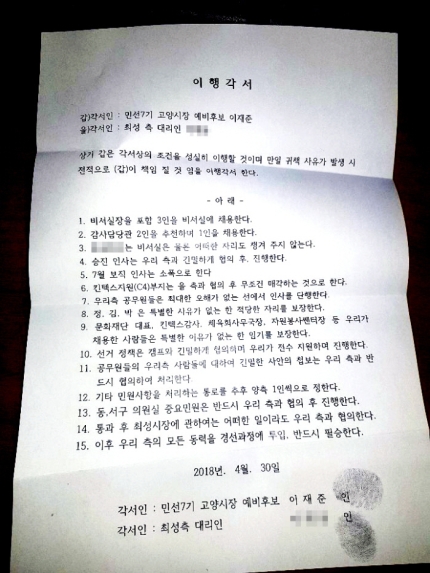 이 행 각 서
갑)각서인 : 민선7기 고양시장 예비후보 이재준
을)각서인 : 최성 측 대리인
상기 갑은 각서상의 조건을 성실히 이행할 것이며 만일 귀책 사유가 발생 시
전적으로 (갑)이 책임 질 것 임을 이행각서 한다.
- 아 래 -
1. 비서실장을 포함 3인을 비서실에 채용한다.
2. 감사담당관 2인을 추천하며 1인을 채용한다.
3. 는 비서실은 물론 어떠한 자리도 챙겨 주지 않는다.
4. 승진 인사는 우리 측과 긴밀하게 협의 후, 진행한다.
5. 7월 보직 인사는 소폭으로 한다
6. 킨텍스지원(C4)부지는 을 측과 협의 후 무조건 매각하는 것으로 한다.
7. 우리측 공무원들은 최대한 오해가 없는 선에서 인사를 단행한다.
8. 정, 김, 박 은 특별한 사유가 없는 한 적당한 자리를 보장한다.
9. 문화재단 대표, 킨텍스감사, 체육회사무국장, 자원봉사센터장 등 우리가
채용한 사람들은 특별한 이유가 없는 한 임기를 보장한다.
10. 선거 정책은 캠프와 긴밀하게 협의하며 우리가 전수 지원하며 진행한다.
11. 공무원들의 우리측 사람들에 대하여 긴밀한 사안의 첩보는 우리 측과 반
드시 협의하여 처리한다.
12. 기타 민원사항을 처리하는 통로를 추후 양측 1인씩으로 정한다.
13. 동,서구 의원실 중요민원은 반드시 우리 측과 협의 후 진행한다.
14. 통과 후 최성시장에 관하여는 어떠한 일이라도 우리 측과 협의한다.
15. 이후 우리 측의 모든 동력을 경선과정에 투입, 반드시 필승한다.
2018년. 4월. 30일
각서인 : 민선7기 고양시장 예비후보 이 재 준 인
각서인 : 최성측 대리인 인